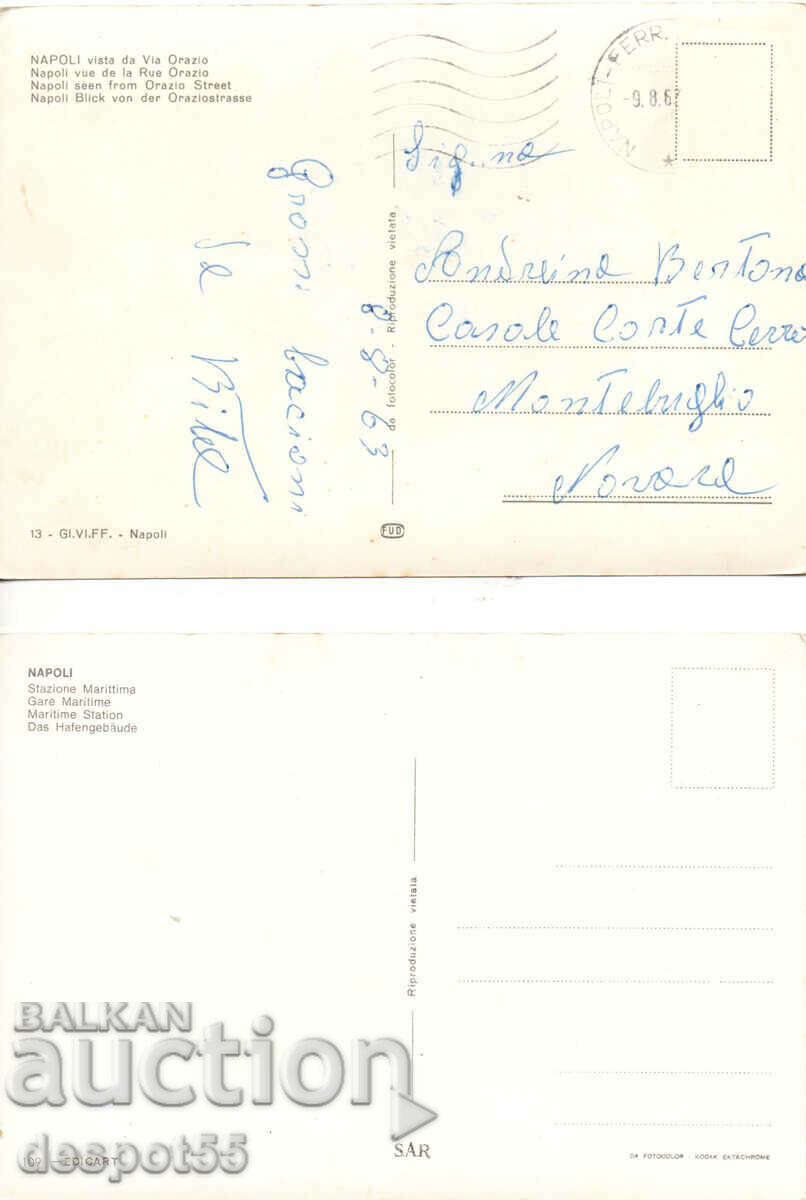 NAPOLI vista da Via Orazio
Napoli vue de la Rue Orazio
Napoli seen from Orazio Street
Napoli Blick von der Oraziostrasse
NAPOLI-FERR.
-9.8.63
Sig.na
Andreina Bertona
Casale Corte Cerro
Montebuglio
Novara
Grossi bacioni
8-8-63
da fotocolor - Riproduzione vietata
13 - GI.VI.FF. - Napoli
FUD
NAPOLI
Stazione Marittima
Gare Maritime
Maritime Station
Das Hafengebäude
Riproduzione vietata
BALKAN
auction
despot55
109 - EDICART
SAR
DA FOTOCOLOR - KODAK EKTACHROME